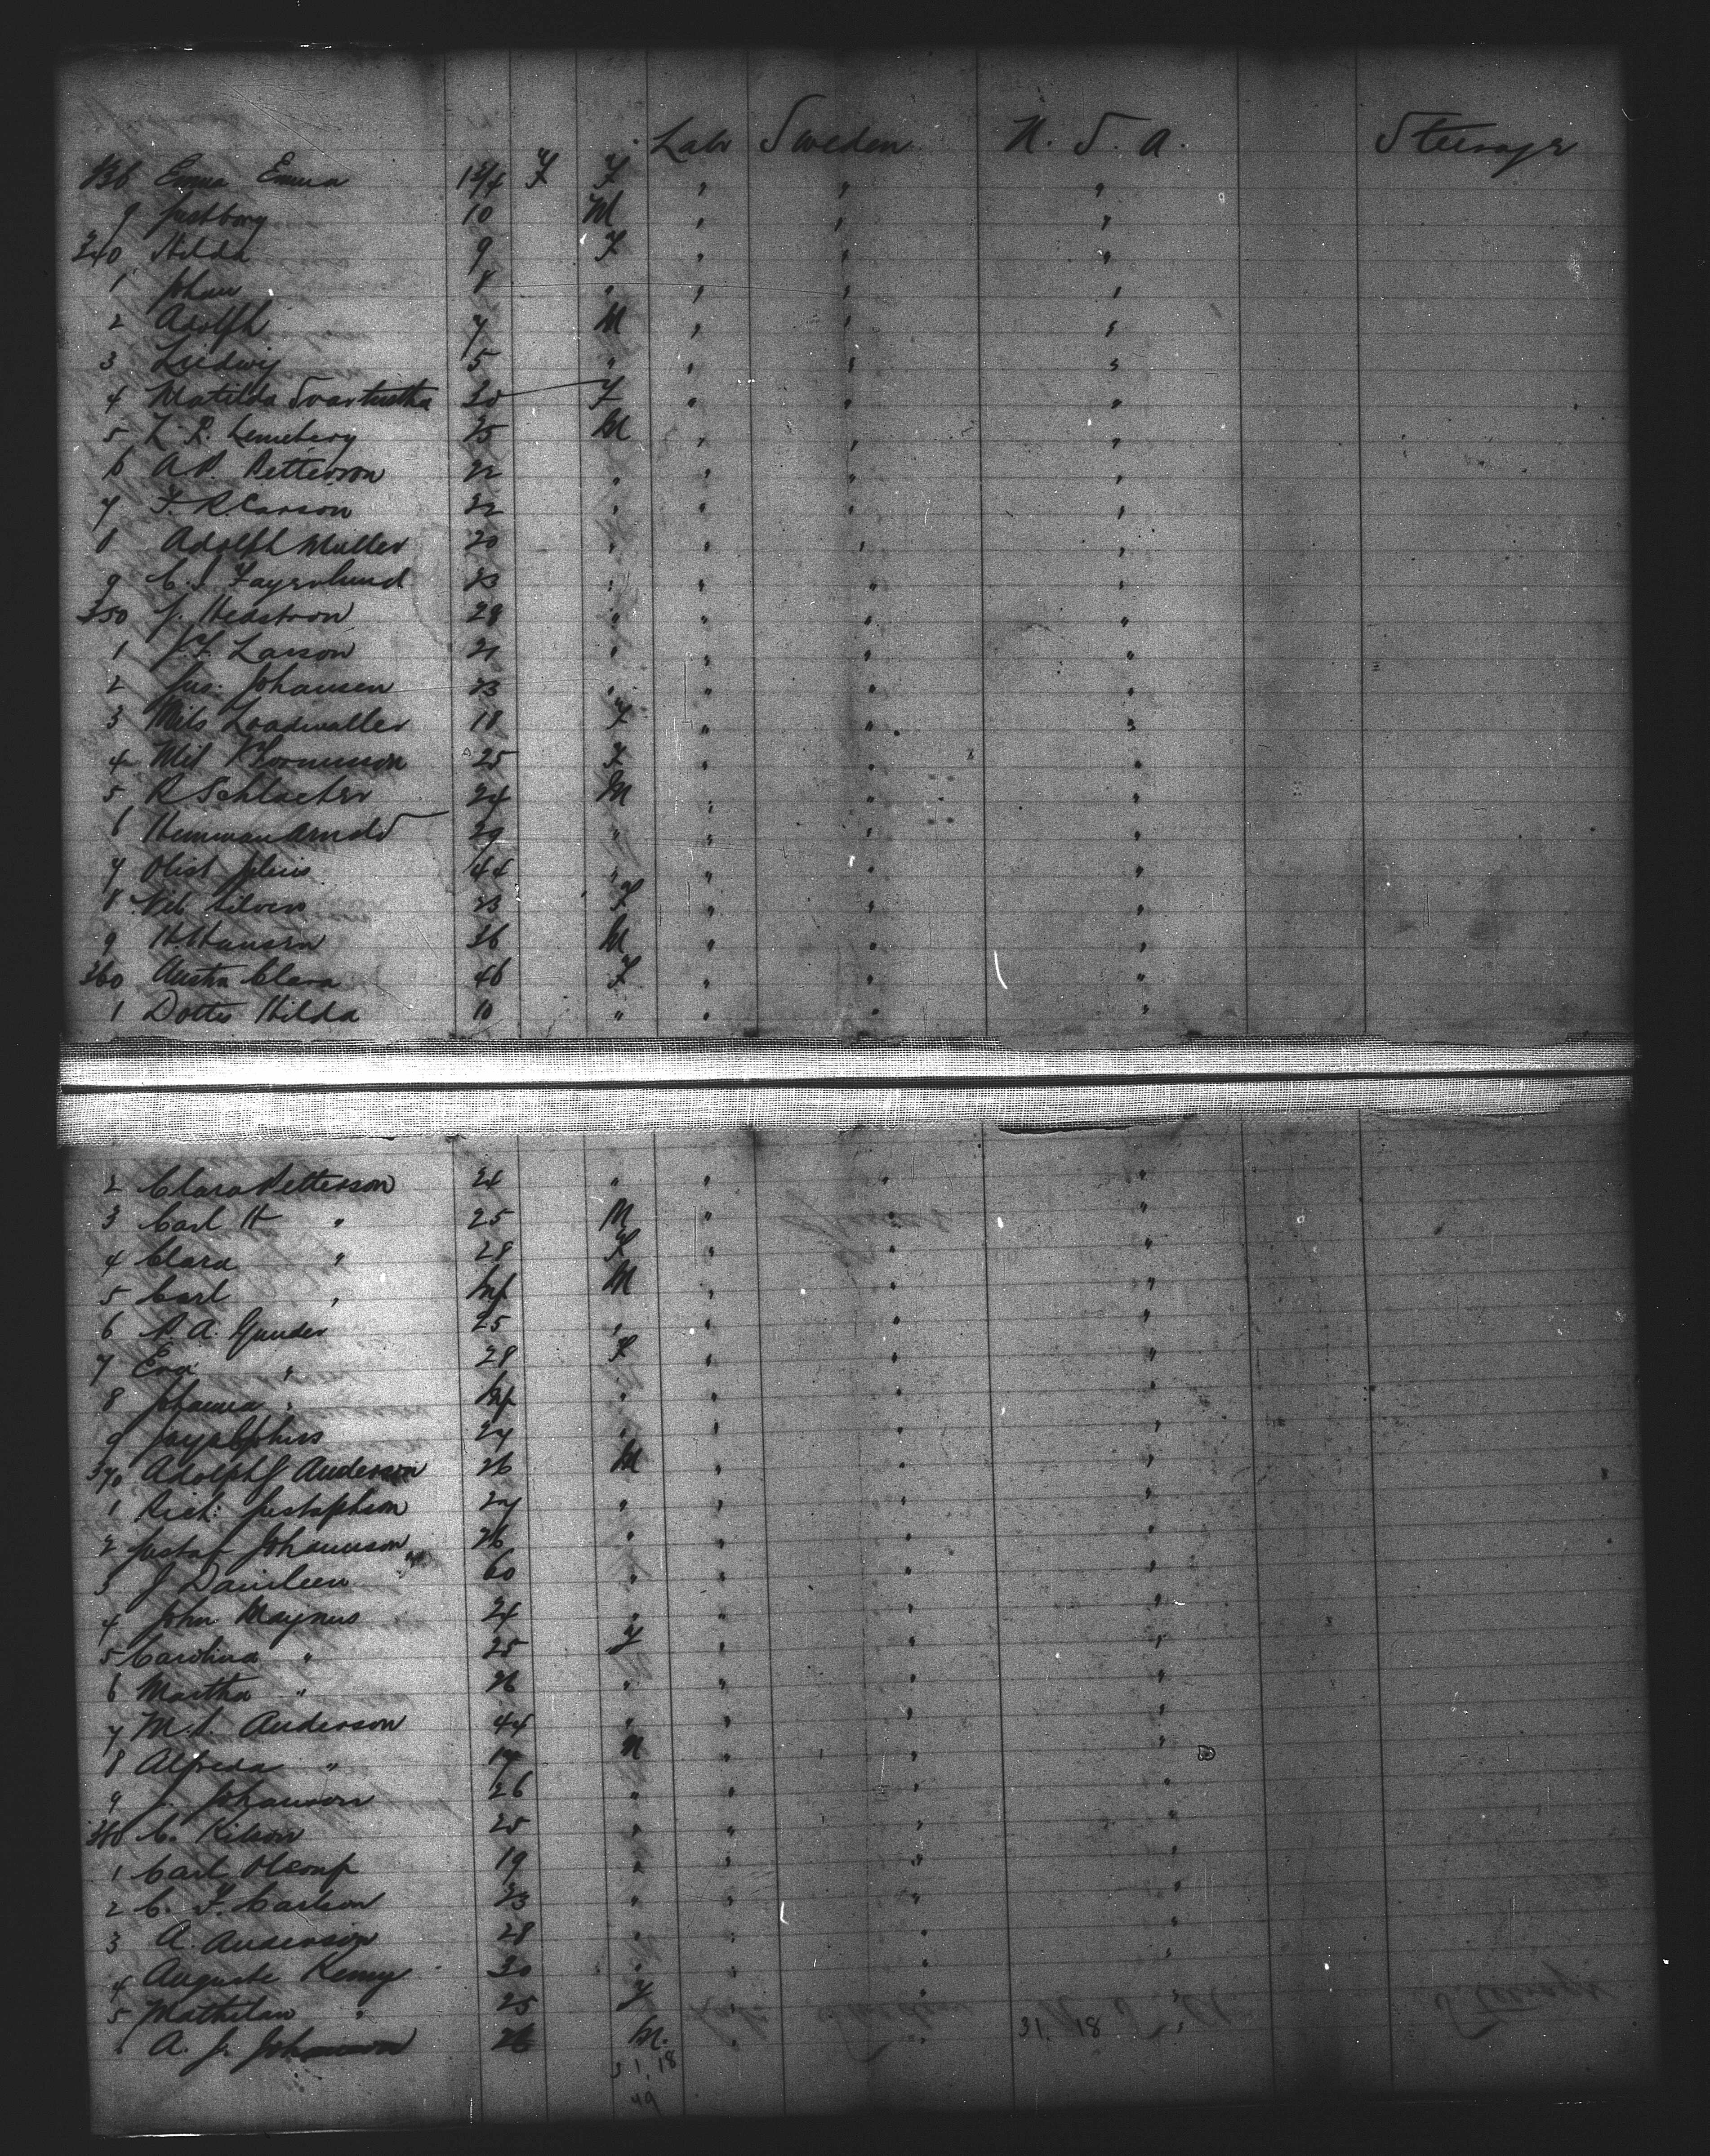 Lab Sweden U. S. A. Steerage
338 Emma 13/4 F F " " "
9 Gustborg 10 M " " "
340 Hilda 9 F " " "
1 Johan 8 " " " "
2 Adolph 7 M " " "
3 Ludwig 5 " " " "
4 Matilda 30 F " " "
5 L. P. 25 M " " "
6 A. P. Petterson 22 " " " "
7 F. R. Carson 22 " " " "
8 Adolph Muller 20 " " " "
9 C. J. Fagerlund 23 " " " "
350 J. Hedstrom 28 " " " "
1 J. F. Larson 21 " " " "
2 Jns. Johansen 23 " " " "
3 Mils Loadwaller 18 F " " "
4 Mil 25 F " " "
5 R Schlacter 24 M " " "
6 Hemman Arnold 29 " " " "
7 Olist Julius 44 " " " "
8 Silvers 23 F " " "
9 H Hansen 36 M " " "
360 Austra Clara 46 F " " "
1 Dotter Hilda 10 " " " "
2 Clara Petterson 24 " " " "
3 Carl H " 25 M " " "
4 Clara " 28 F " " "
5 Carl " Inf M " " "
6 P. A. Gunder 25 " " " "
7 Eva " 28 F " " "
8 Johanna " Inf " " " "
9 27 " " " "
370 Adolph J Anderson 26 M " " "
1 Rich. Gustafson 27 " " " "
2 Gustaf Johannson 26 " " " "
3 J Danileen 60 " " " "
4 John Magnus 24 " " " "
5 Carolina " 25 F " " "
6 Martha " 26 " " " "
7 M. S. Anderson 44 " " " "
8 Alfreda " 17 M " " "
9 J. Johanson 26 " " " "
380 C. Nilson 25 " " " "
1 Carl 19 " " " "
2 C. F. Carlson 23 " " " "
3 A. Anderson 28 " " " "
4 Auguste Kenny 30 " " " "
5 Mathilan " 25 F " " "
6 A. J. Johanson 26 M. " " "
31. 18
31, 18
49